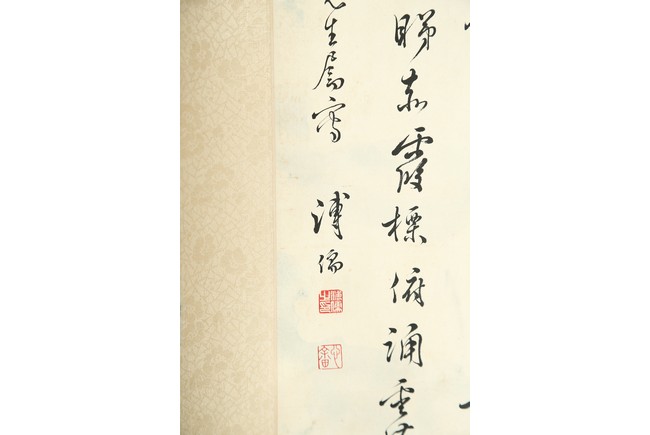 睇赤霞標俯誦雲
先生屬寫
溥儒